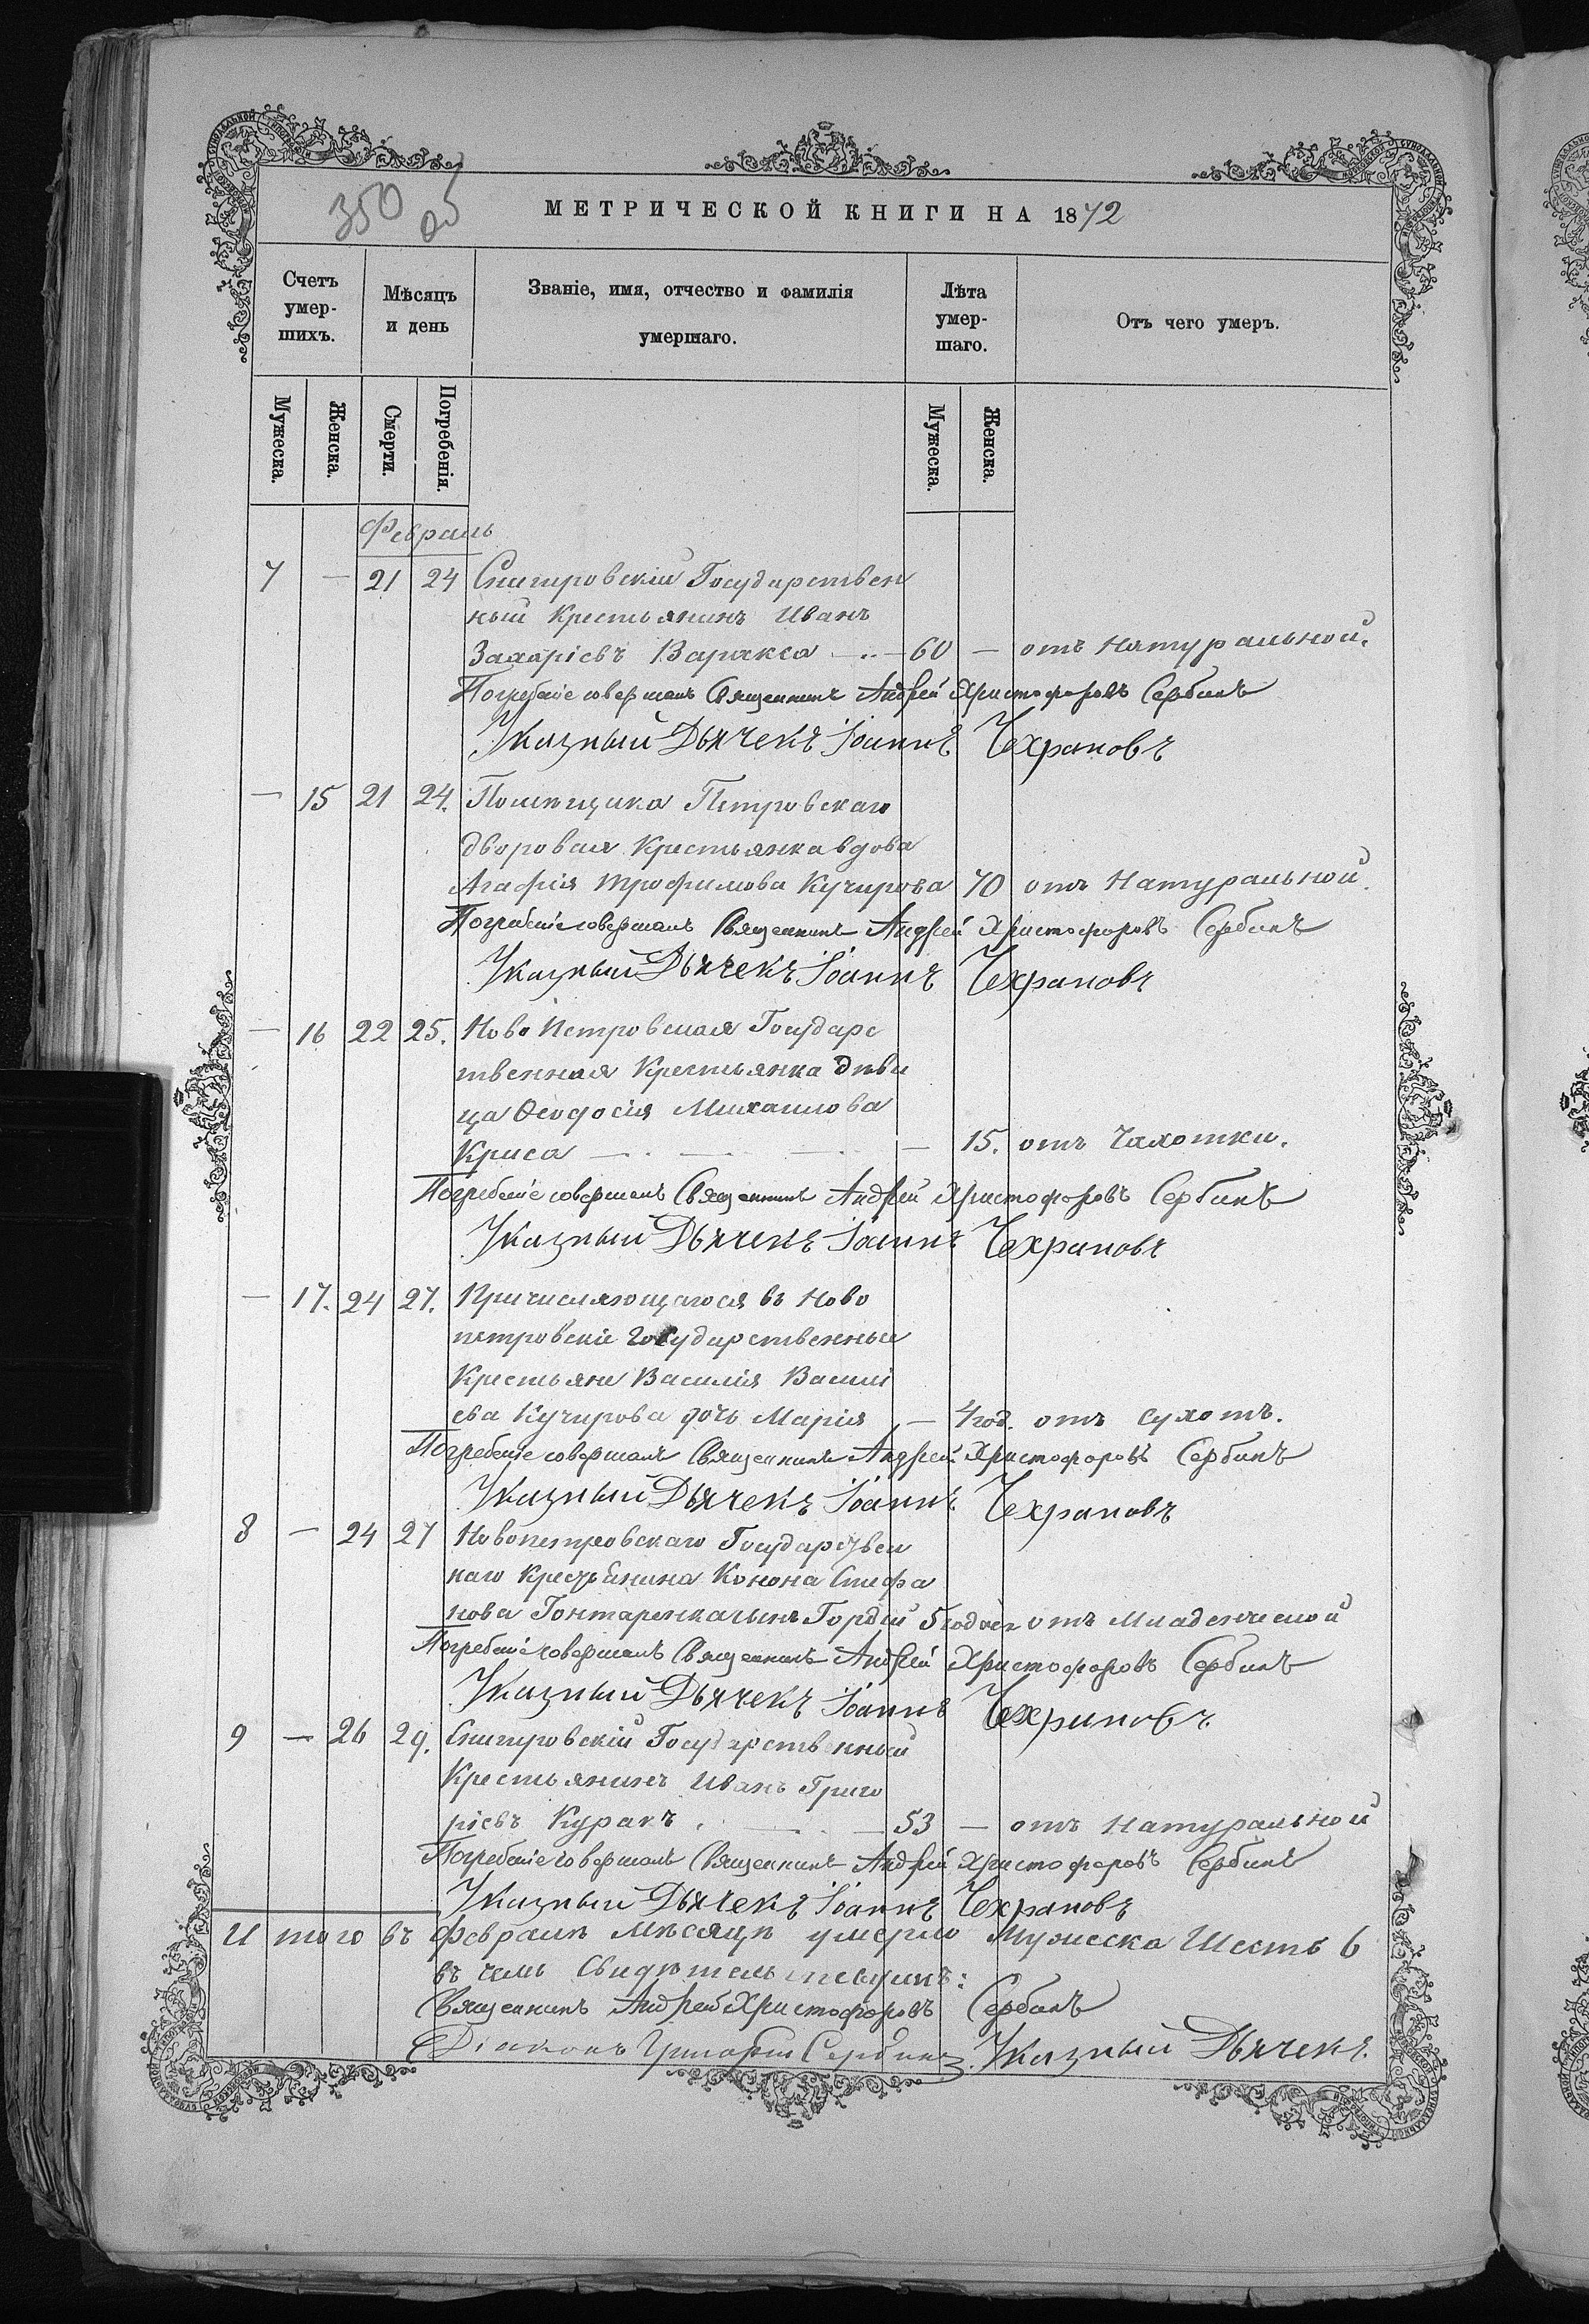 350 об
МЕТРИЧЕСКОЙ КНИГИ НА 1872
Счетъ умер-шихъ.
Мѣсяцъ и день
Званіе, имя, отчество и фамилія умершаго.
Лѣта умер-шаго.
Отъ чего умеръ.
Мужеска. Женска. Смерти. Погребенія. Мужеска. Женска.
Февраль
7 — 21 24 Снигировскій Государствен
ный Крестьянинъ Иванъ
Захаріевъ Варакса — 60 — отъ Натуральной.
Погребеніе совершалъ Священникъ Андрей Христофоровъ Сербинъ
Указный Дьячекъ Іоаннъ Чехрановъ
— 15 21 24. Помѣщика Петровскаго
дворовая Крестьянка вдова
Агафія Трофимова Кучирова 70 отъ Натуральной.
Погребеніе совершалъ Священникъ Андрей Христофоровъ Сербинъ
Указный Дьячекъ Іоаннъ Чехрановъ
— 16 22 25. Ново Петровская Государс
твенная Крестьянка дѣви
ца Ѳеодосія Михаилова
Криса — — — — 15. отъ Чахотки.
Погребеніе совершалъ Священникъ Андрей Христофоровъ Сербинъ
Указный Дьячекъ Іоаннъ Чехрановъ
— 17. 24 27. Причисляющагося въ Ново
петровскіе государственные
Крестьяне Василія Василі
ева Кучирова дочь Марія — 4 год. отъ сухотъ.
Погребеніе совершалъ Священникъ Андрей Христофоровъ Сербинъ
Указный Дьячекъ Іоаннъ Чехрановъ
8 — 24 27 Новопетровскаго Государствен
наго Крестьянина Конона Стефа
нова Гонтаренка сынъ Гордій 5 отъ Младенческой
Погребеніе совершалъ Священникъ Андрей Христофоровъ Сербинъ
Указный Дьячекъ Іоаннъ Чехрановъ.
9 — 26 29. Снигировскій Государственный
Крестьянинъ Иванъ Григо
ріевъ Куракъ. — 53 — отъ Натуральной
Погребеніе совершалъ Священникъ Андрей Христофоровъ Сербинъ
Указный Дьячекъ Іоаннъ Чехрановъ
Итого въ Февралѣ мѣсяцѣ умерло Мужеска Шесть 6
въ чемъ Свидѣтельствуемъ:
Священникъ Андрей Христофоровъ Сербинъ
Діаконъ Григорій Сербинъ. Указный Дьячекъ.